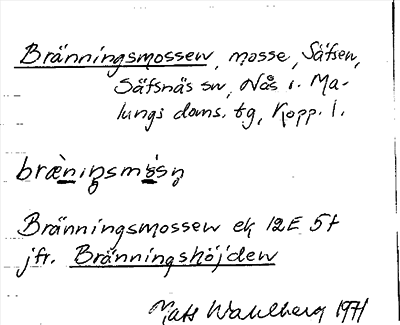 Bränningsmossen, mosse, Säfsen,
Säfsnäs sn, Nås i. Ma-
lungs doms. tg, Kopp. l.
bræ̀niŋsmòsn̥
Bränningsmossen ek 12E 5f
jfr. Bränningshöjden
Mats Wahlberg 1971